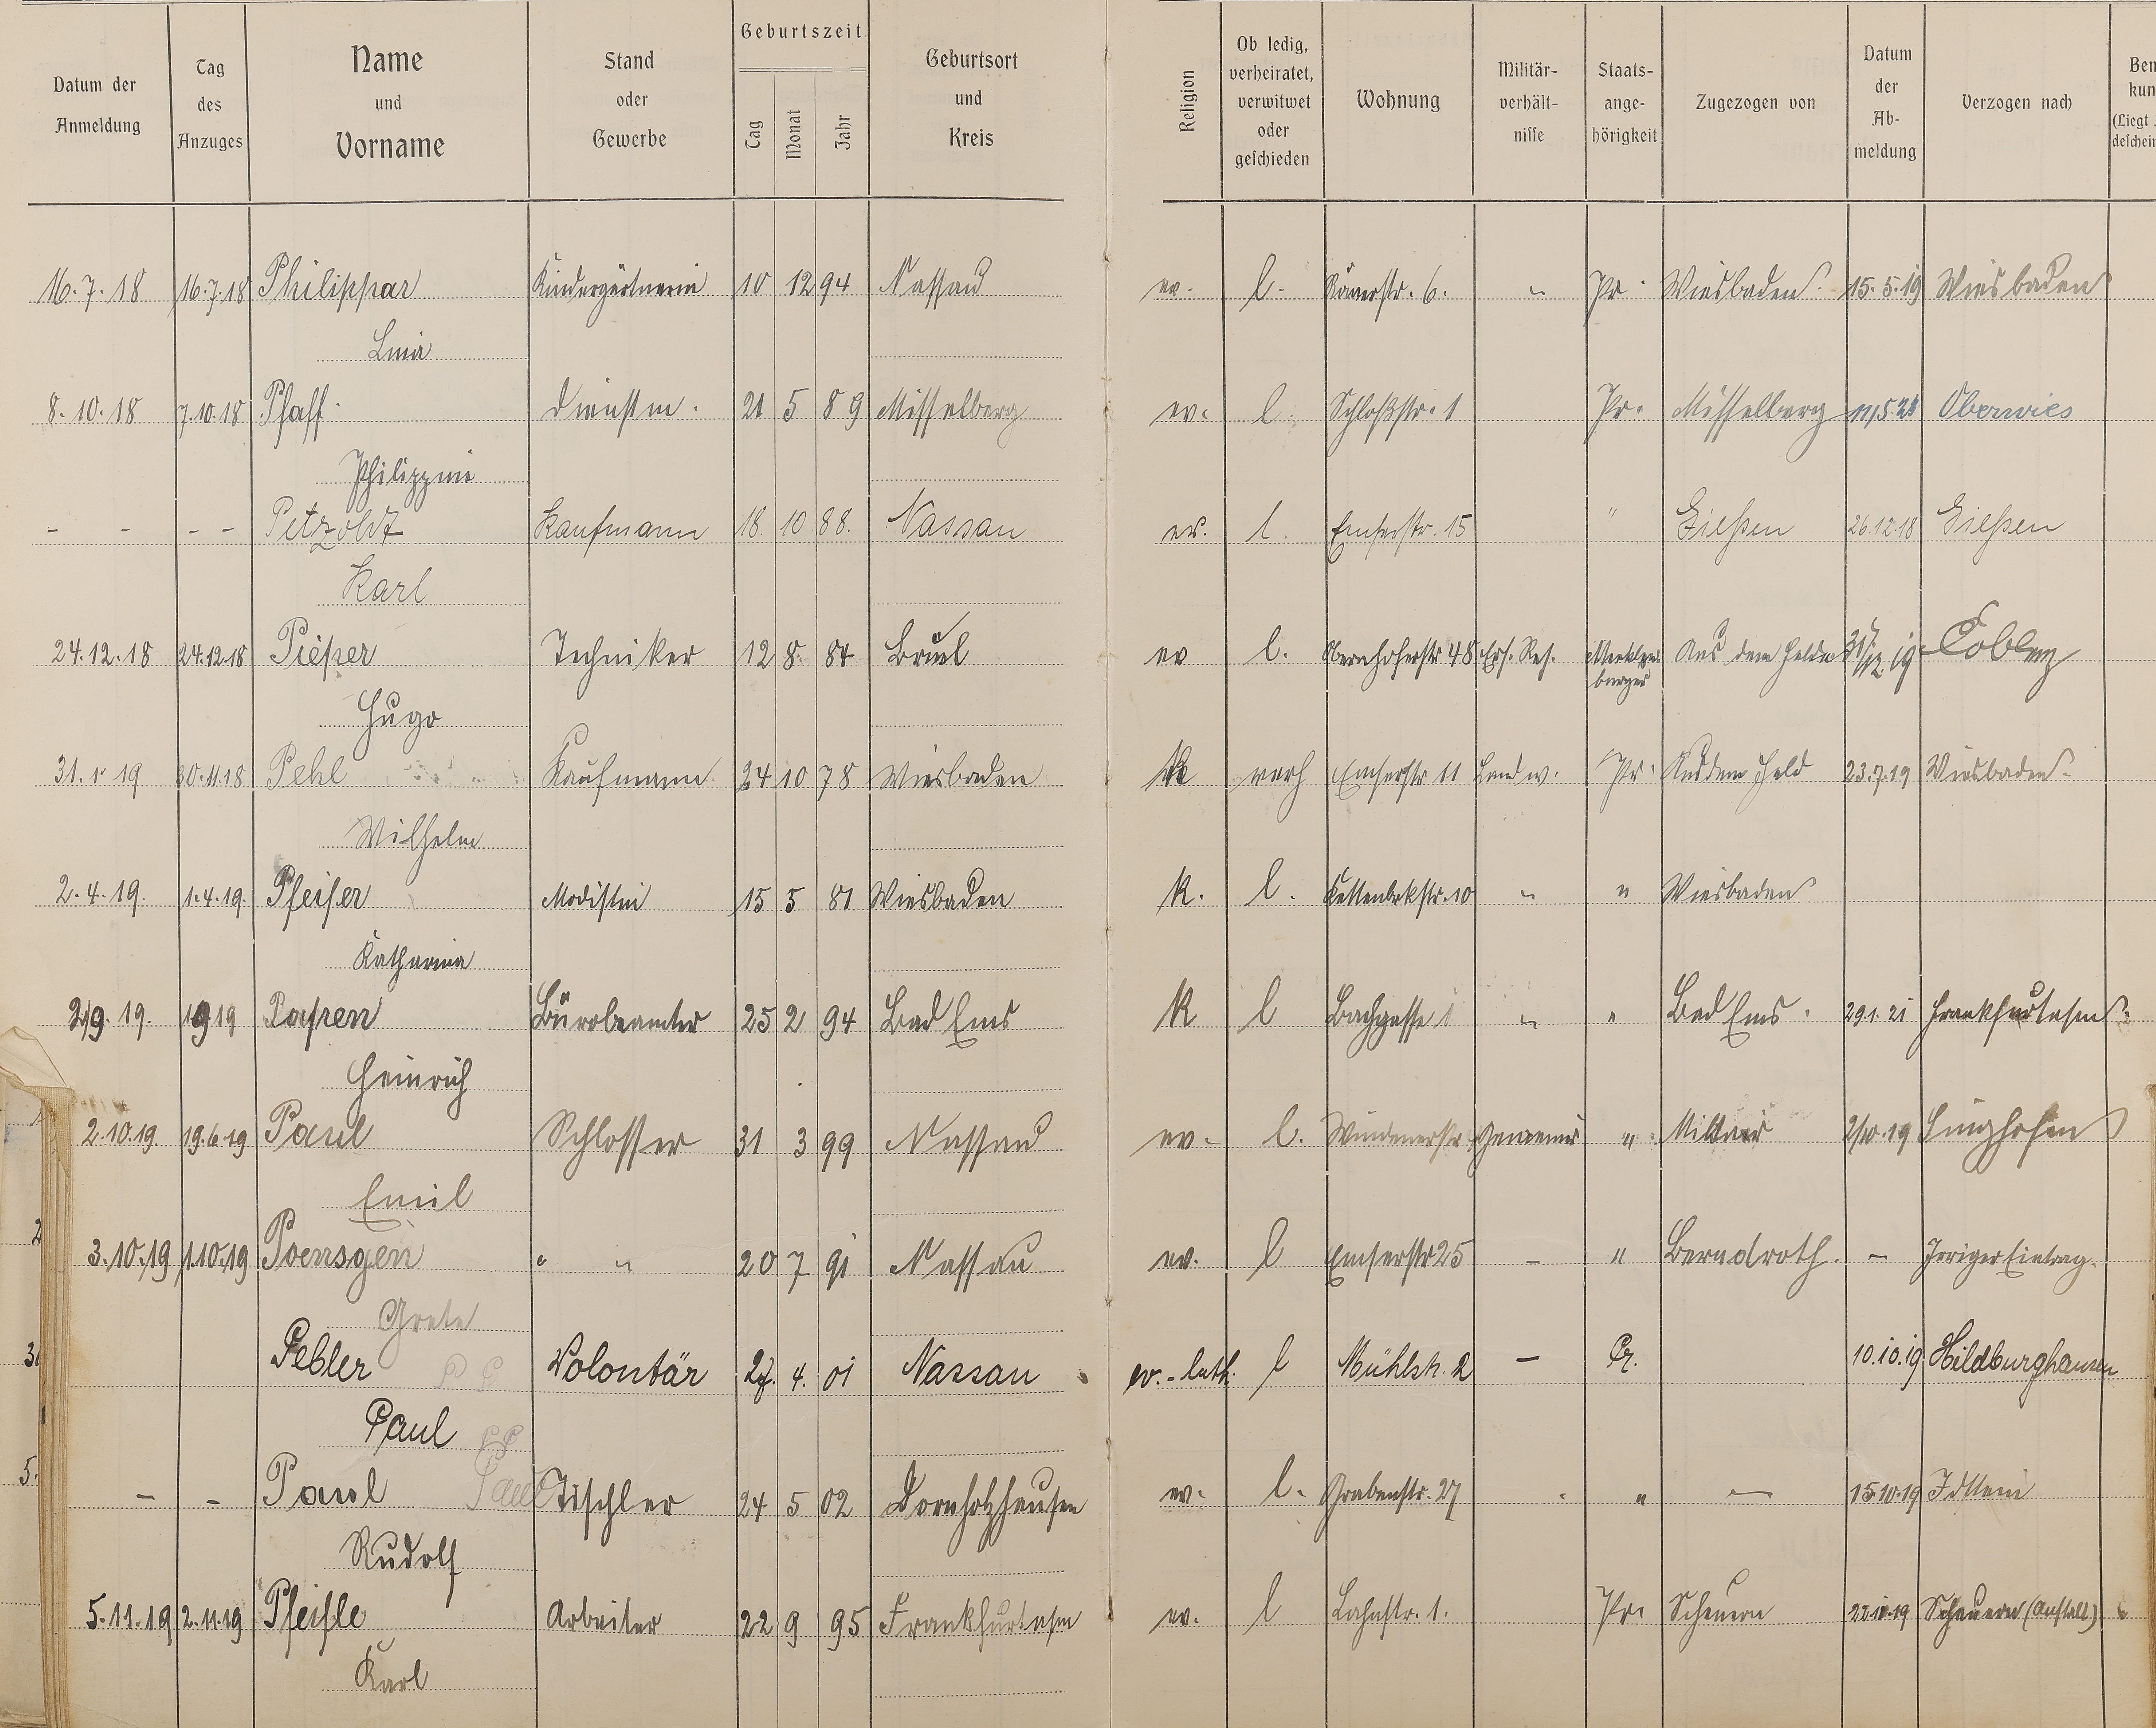 Datum der Anmeldung | Tag des Anzuges | Name und Vorname | Stand oder Gewerbe | Geburtszeit Tag Monat Jahr | Geburtsort und Kreis | Religion | Ob ledig, verheiratet, verwitwet oder geschieden | Wohnung | Militär-verhält-nisse | Staats-ange-hörigkeit | Zugezogen von | Datum der Ab-meldung | Verzogen nach | Ben kun (Liegt descheir
16.7.18 16.7.18 Philippar Kindergärtnerin 10 12 94 Nassau ev. l. Römerstr. 6. " Pr. Wiesbaden 15.5.19 Wiesbaden
Lina
8.10.18 7.10.18 Pfaff Dienstm. 21 5 89 Misselberg ev. l. Schloßstr. 1 Pr. Misselberg 11/5 21 Oberwies
Philippine
- - - - Petzoldt Kaufmann 18 10 88. Nassau ev. l. Emserstr. 15 " Gießen 26.12.18 Gießen
Karl
24.12.18 24.12.18 Pieper Techniker 12 8. 84 Brüel ev l. Obernhoferstr 48 Ers. Res. Mecklen-burger Aus dem Felde 31/12.19 Coblenz
Hugo
31.1.19 30.11.18 Pehl Kaufmann 24 10 78 Wiesbaden k verh Emserstr 11 Landw. Pr. Aus dem Feld 23.7.19 Wiesbaden
Wilhelm
2.4.19. 1.4.19. Pfeifer Modistin 15 5 81 Wiesbaden k. l. Kettenbrkstr. 10 " " Wiesbaden
Katharina
2/9. 19. 1 9 19 Papen Bürobeamter 25 2 94 Bad Ems k l Bachgasse 1 " " Bad Ems. 29.1.21 Frankfurt a/m
Heinrich
2.10.19. 19.6.19 Paul Schlosser 31 3 99 Nassau ev. l. Windenerstr. Gemeiner " Militair 2/10.19 Singhofen
Emil
3.10.19 1.10.19 Poensgen " " 20 7 91 Nassau ev. l Emserstr 25 - " Berndroth. - Irriger Eintrag.
Grete
Pebler Volontär 27. 4. 01 Nassau ev.-luth. l Mühlstr. 2 - Pr. 10.10.19. Hildburghausen
Paul
- - Paul Paul Tischler 24 5 02 Dornholzhausen ev. l. Grabenstr. 27 " - 15.10.19 Idstein
Rudolf
5.11.19 2.11.19 Pfeifle Arbeiter 22 9 95 Frankfurt a/m ev. l Lahnstr. 1. Pr. Scheuern Scheuern (Anstalt)
Karl